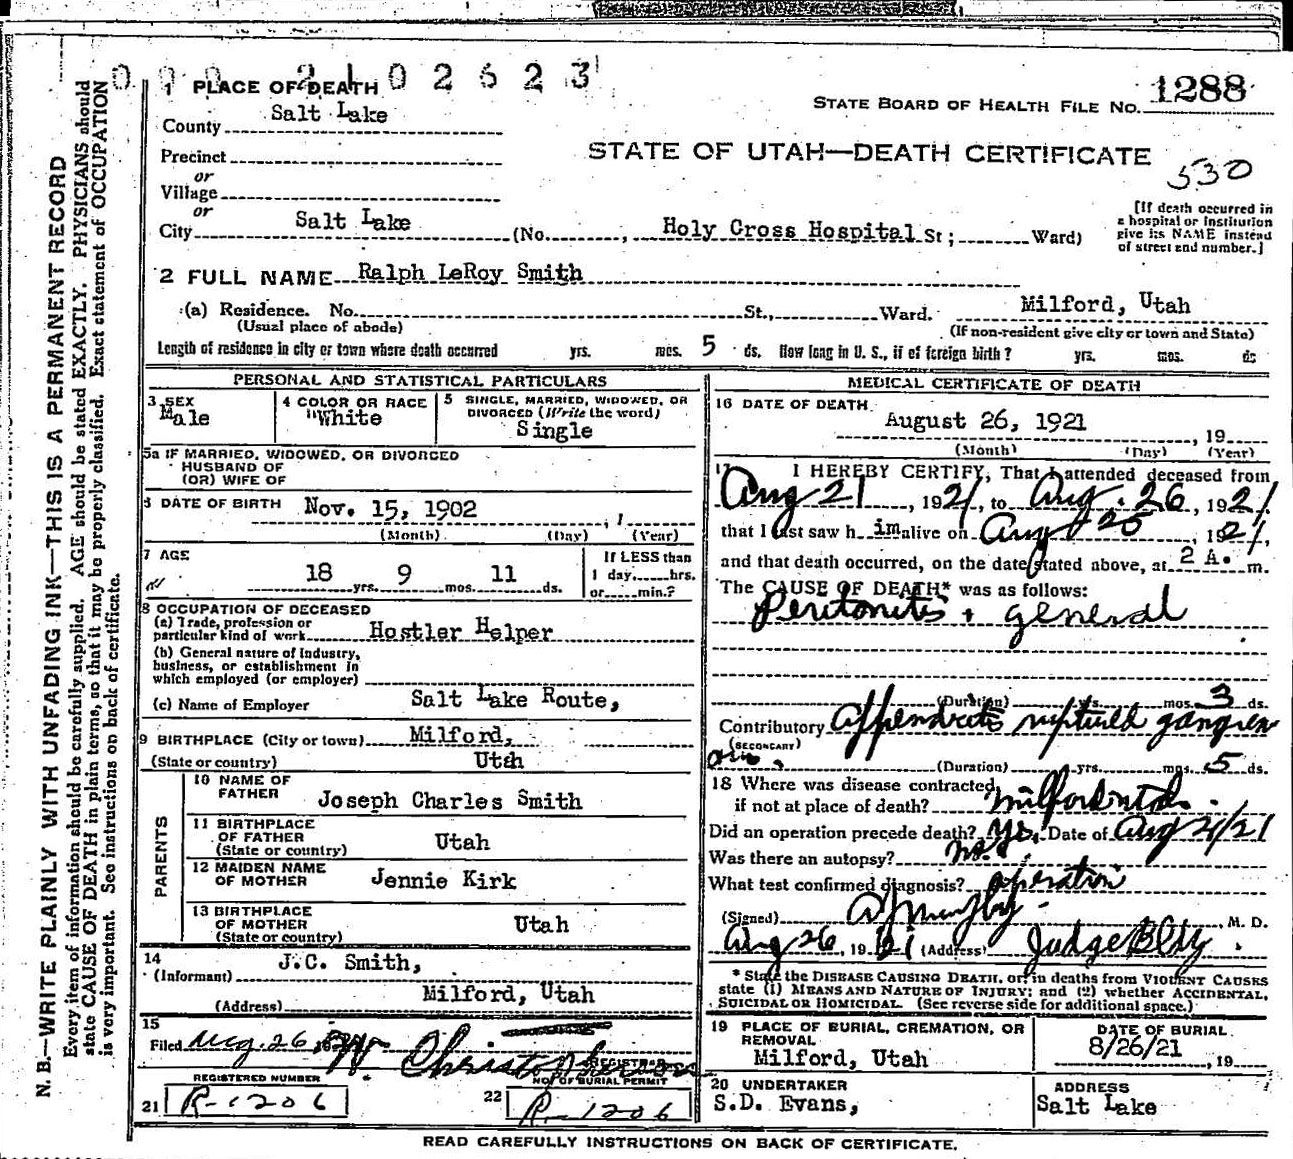 0 0 0 2 1 0 2 6 2 3
1 PLACE OF DEATH
STATE BOARD OF HEALTH FILE NO. 1288
County Salt Lake
Precinct
STATE OF UTAH—DEATH CERTIFICATE
530
or
Village
or
City Salt Lake (No. , Holy Cross Hospital St; Ward)
[If death occurred in
a hospital or institution
give its NAME instead
of street and number.]
2 FULL NAME Ralph LeRoy Smith
(a) Residence. No. St., Ward. Milford, Utah
(Usual place of abode) (If non-resident give city or town and State)
Length of residence in city or town where death occurred yrs. mos. 5 ds. How long in U. S., if of foreign birth? yrs. mos. ds
PERSONAL AND STATISTICAL PARTICULARS
3 SEX
Male
4 COLOR OR RACE
"White
5 SINGLE, MARRIED, WIDOWED, OR
DIVORCED (Write the word)
Single
5a IF MARRIED, WIDOWED, OR DIVORCED
HUSBAND OF
(OR) WIFE OF
6 DATE OF BIRTH Nov. 15, 1902 , 1
(Month) (Day) (Year)
7 AGE
18 yrs. 9 mos. 11 ds.
If LESS than
1 day, hrs.
or min.?
8 OCCUPATION OF DECEASED
(a) Trade, profession or
particular kind of work Hostler Helper
(b) General nature of Industry,
business, or establishment in
which employed (or employer)
(c) Name of Employer Salt Lake Route,
9 BIRTHPLACE (City or town) Milford,
(State or country) Utah
PARENTS
10 NAME OF
FATHER Joseph Charles Smith
11 BIRTHPLACE
OF FATHER
(State or country) Utah
12 MAIDEN NAME
OF MOTHER Jennie Kirk
13 BIRTHPLACE
OF MOTHER
(State or country) Utah
14
(Informant) J.C. Smith,
(Address) Milford, Utah
15
Filed Aug. 26, W. Christopherson
REGISTRAR
REGISTERED NUMBER
21 R-1206
NO. OF BURIAL PERMIT
22 R-1206
MEDICAL CERTIFICATE OF DEATH
16 DATE OF DEATH
August 26, 1921 , 19
(Month) (Day) (Year)
17 I HEREBY CERTIFY, That I attended deceased from
Aug 21 , 1921, to Aug. 26, 1921,
that I last saw h im alive on Aug 25 , 1921,
and that death occurred, on the date stated above, at 2 A. m.
The CAUSE OF DEATH* was as follows:
Peritonitis + general
(Duration) yrs. mos. 3 ds.
Contributory Appendicitis ruptured gangren
(SECONDARY)
ous. (Duration) yrs. mos. 5 ds.
18 Where was disease contracted,
if not at place of death? Milford Utah.
Did an operation precede death? Yes. Date of Aug 21/21
Was there an autopsy? No.
What test confirmed diagnosis? operation
(Signed) M. D.
Aug 26, 1921 (Address) Judge Bldg.
* State the DISEASE CAUSING DEATH, or, in deaths from VIOLENT CAUSES
state (1) MEANS AND NATURE OF INJURY; and (2) whether ACCIDENTAL,
SUICIDAL OR HOMICIDAL. (See reverse side for additional space.)
19 PLACE OF BURIAL, CREMATION, OR
REMOVAL
Milford, Utah
DATE OF BURIAL
8/26/21 , 19
20 UNDERTAKER
S.D. Evans,
ADDRESS
Salt Lake
READ CAREFULLY INSTRUCTIONS ON BACK OF CERTIFICATE.
N. B.—WRITE PLAINLY WITH UNFADING INK—THIS IS A PERMANENT RECORD
Every item of information should be carefully supplied. AGE should be stated EXACTLY. PHYSICIANS should
state CAUSE OF DEATH in plain terms, so that it may be properly classified. Exact statement of OCCUPATION
is very important. See instructions on back of certificate.